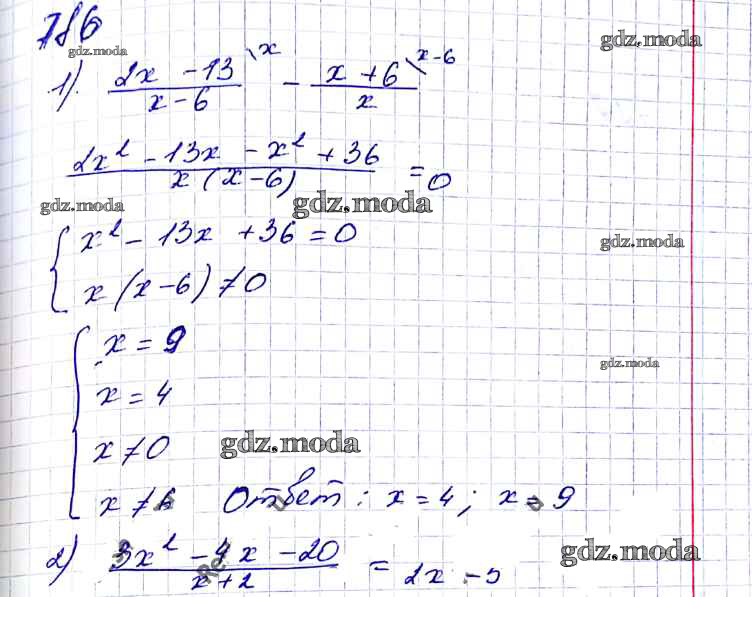 786
gdz.moda
gdz.moda
1). (2x - 13)/(x - 6) \x - (x + 6)/x \x-6
(2x² - 13x - x² + 36)/(x(x-6)) = 0
gdz.moda
gdz.moda
{ x² - 13x + 36 = 0
gdz.moda
x(x-6) ≠ 0
{ x = 9
gdz.moda
x = 4
x ≠ 0
gdz.moda
x ≠ 6 Ответ: x = 4; x = 9
2) (3x² - 4x - 20)/(x+2) = 2x - 5
gdz.moda